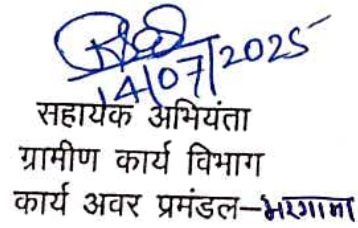 14/07/2025
सहायक अभियंता
ग्रामीण कार्य विभाग
कार्य अवर प्रमंडल–भरगामा